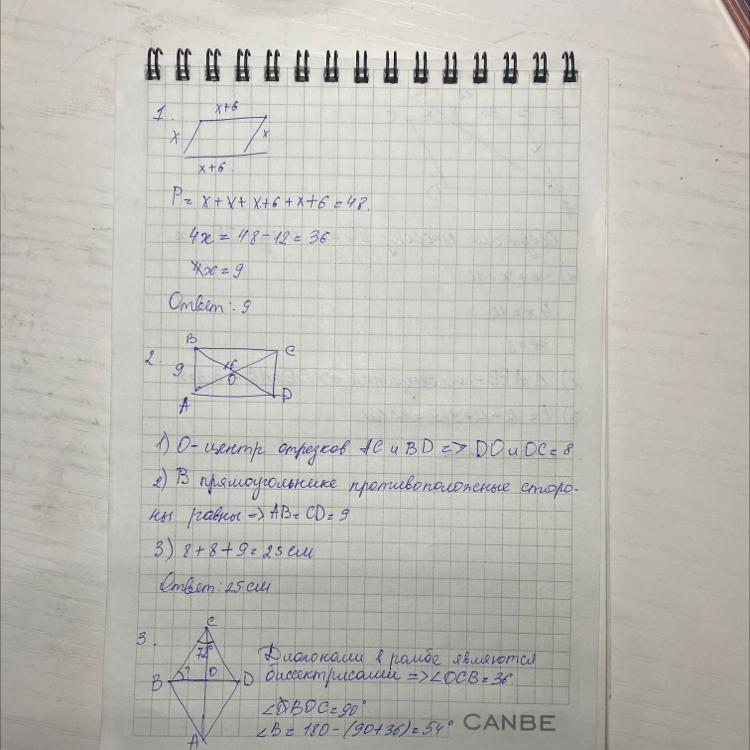 1.
x+6
x
x
x+6
P= x+x+x+6+x+6=48.
4x=48-12=36
x=9
Ответ: 9
2.
B
C
16
9
O
A
D
1) O-центр отрезков AC и BD => DO и OC=8
2) В прямоугольнике противоположные сторо-
ны равны => AB=CD=9
3) 8+8+9=25см
Ответ: 25см
3.
C
72°
B
?
O
D
A
Диагонали в ромбе являются
биссектрисами => ∠OCB=36
∠BOC=90°
∠B= 180-(90+36)=54°
CANBE